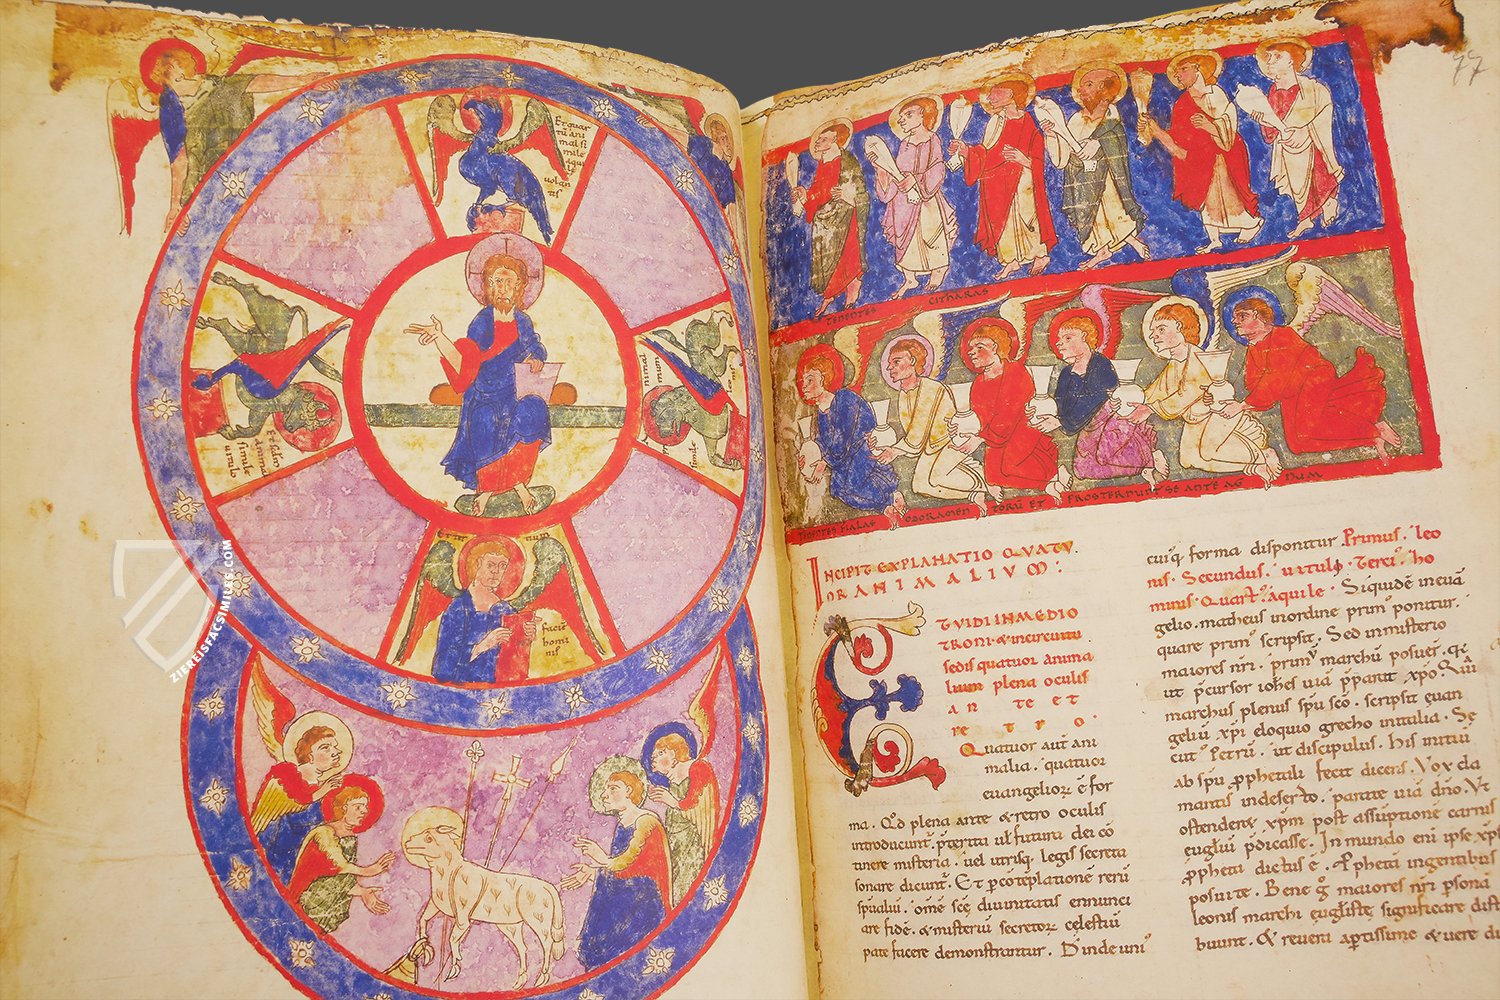 Et quar
tū ani
mal si
mile
aqui
le
uolan
tis
nimal
mum
simile
faciē
homi
nis
TENENTES
CITHARAS
TENENTES FIALAS
ODORAMEN
TORŪ ET
PROSTERNUNT SE ANTE AG
NUM
77
INCIPIT EXPLANATIO QUATU
OR ANIMALIUM:
ET UIDI IN MEDIO
TRONI & in circuitu
sedis quatuor anima
lium plena oculis
an te et
re t r o .
Quatuor aut̄ ani
malia. quatuor
euangelior̄ ē for
ma. Qd̄ plena ante & retro oculis
introducunt̄. p̄terita ul̄ futura dei cō
tinere misteria. uel utrisq. legis secreta
sonare dicunt̄. Et p̄ cōteplationē rerū
sp̄ualiū. omē scē diuinitatis enunci
are fidē. & misteriū secretor̄ celestiū
pate facere demonstrantur. Dinde uni᾽
cuiq̨ forma disponitur. Primus. leo
nis. Secundus. uitulo. Terci᾽. ho
minis. Quart᾽. aquile. Siquidē in euā
gelio. matheus in ordine prim᾽ ponitur.
quare prim᾽ scripsit. Sed in misterio
maiores nr̄i. primū marchū posuer̄. &
ut p̄cursor iohēs uiā p̄parat xp̄o. Sim̄
marchus plenus sp̄u sc̄o. scripsit euan
geliū xp̄i eloquio grecho in italia. Se
cut᾽ Petrū. ut discipulus. his initiū
ab sp̄u p̄phetali fecit dicens. Vox cla
mantis in deserto. parate uiā dn̄o. Vt
ostenderet xp̄m post assūptionē carnis
euḡliū p̄dicasse. In mundo eni ipse xp̄s
p̄pheta dictus ē. Apheti in gentibus
posui te. Bene ḡ maiores nr̄i p̄sona
leonis marchi euḡliste significare dist
buunt. & reueni aptissime & uere di
ZIEREISFACSIMILES.COM